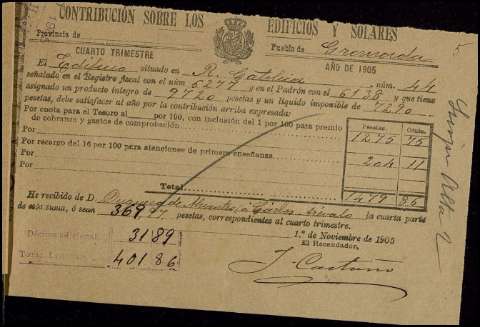 CONTRIBUCIÓN SOBRE LOS EDIFICIOS Y SOLARES
Provincia de
Pueblo de
5
CUARTO TRIMESTRE
AÑO DE 1905
El Edificio situado en R. Cataluña, núm. 44
señalado en el Registro fiscal con el núm. 5277 y en el Padrón con el 6138 y que tiene
asignado un producto íntegro de 9720 pesetas y un líquido imponible de 7290
pesetas, debe satisfacer al año por la contribución arriba expresada:
Pesetas. Cénts.
Por cuota para el Tesoro al por 100, con inclusión del 1 por 100 para premio
de cobranza y gastos de comprobación. 1275 75
Por
Por recargo del 16 por 100 para atenciones de primera enseñanza. 204 11
Por
Total 1479 86
He recibido de D. la cuarta parte
de esta suma, ó sean 369 97 pesetas, correspondientes al cuarto trimestre.
1.º de Noviembre de 1905
El Recaudador,
Décima adicional 31 89
Total 401 86